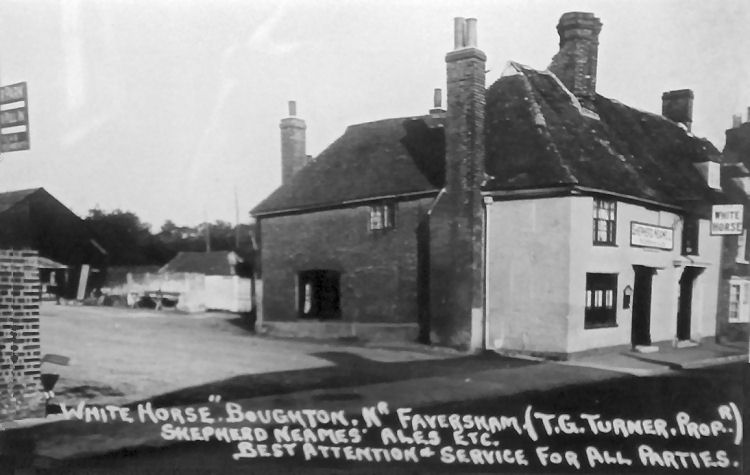 WHITE
HORSE
SHEPHERD NEAME
"WHITE HORSE". BOUGHTON. NR FAVERSHAM. (T.G. TURNER. PROP.R)
SHEPHERD NEAMES' ALES ETC.
BEST ATTENTION & SERVICE FOR ALL PARTIES.